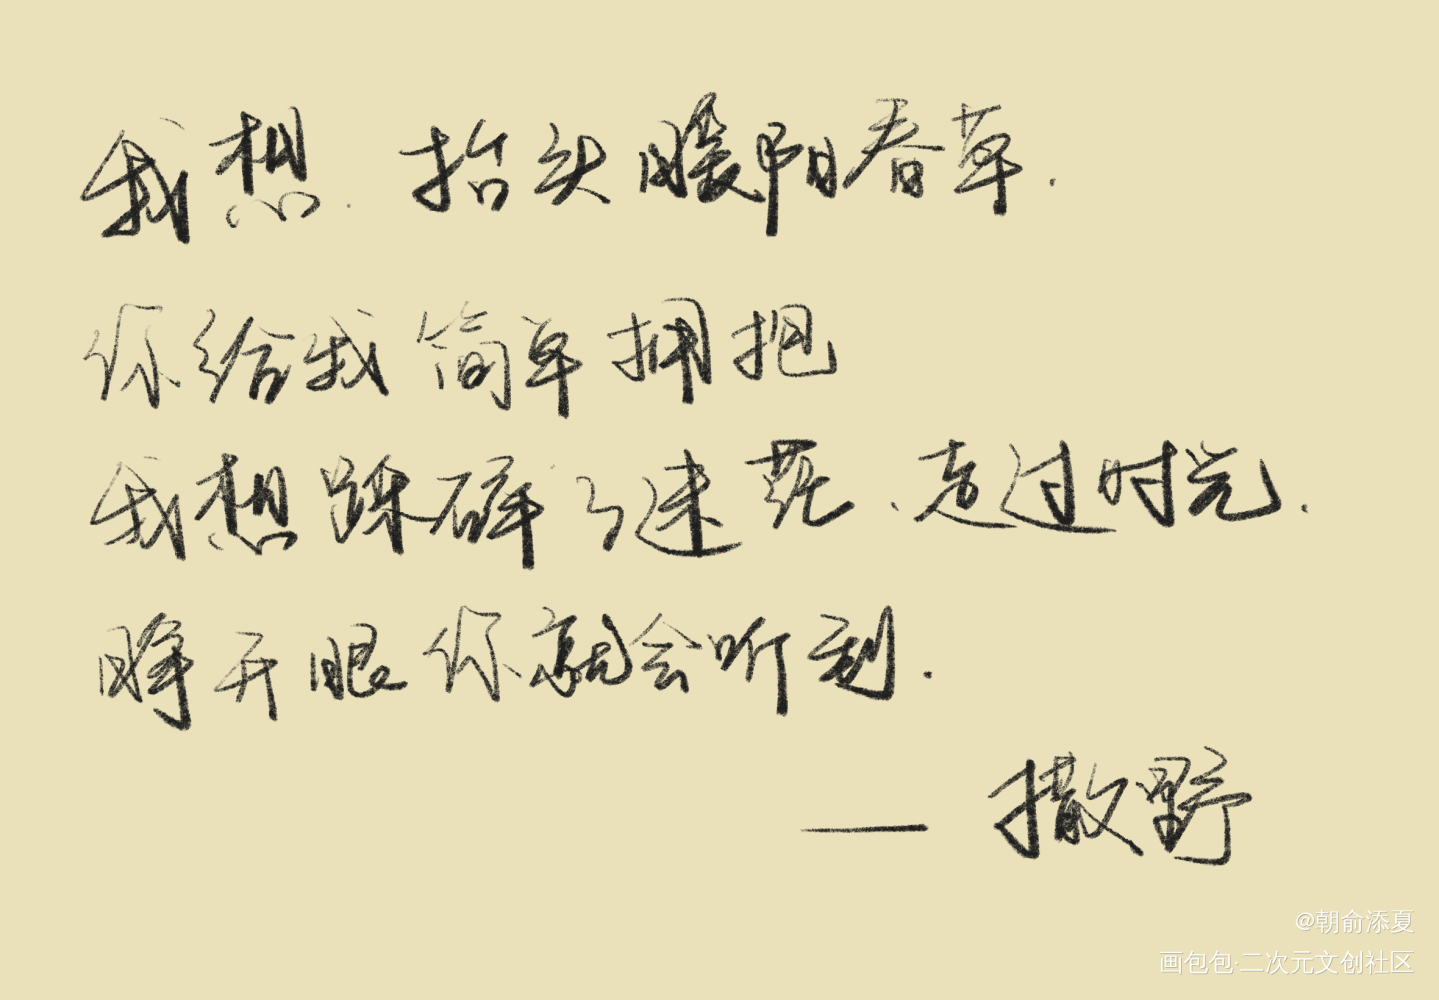 我想.抬头暖阳春草.
你给我简单拥抱
我想踩碎了迷茫、走过时光.
睁开眼你就会听到.
—— 撒野
@朝俞添夏
画包包·二次元文创社区